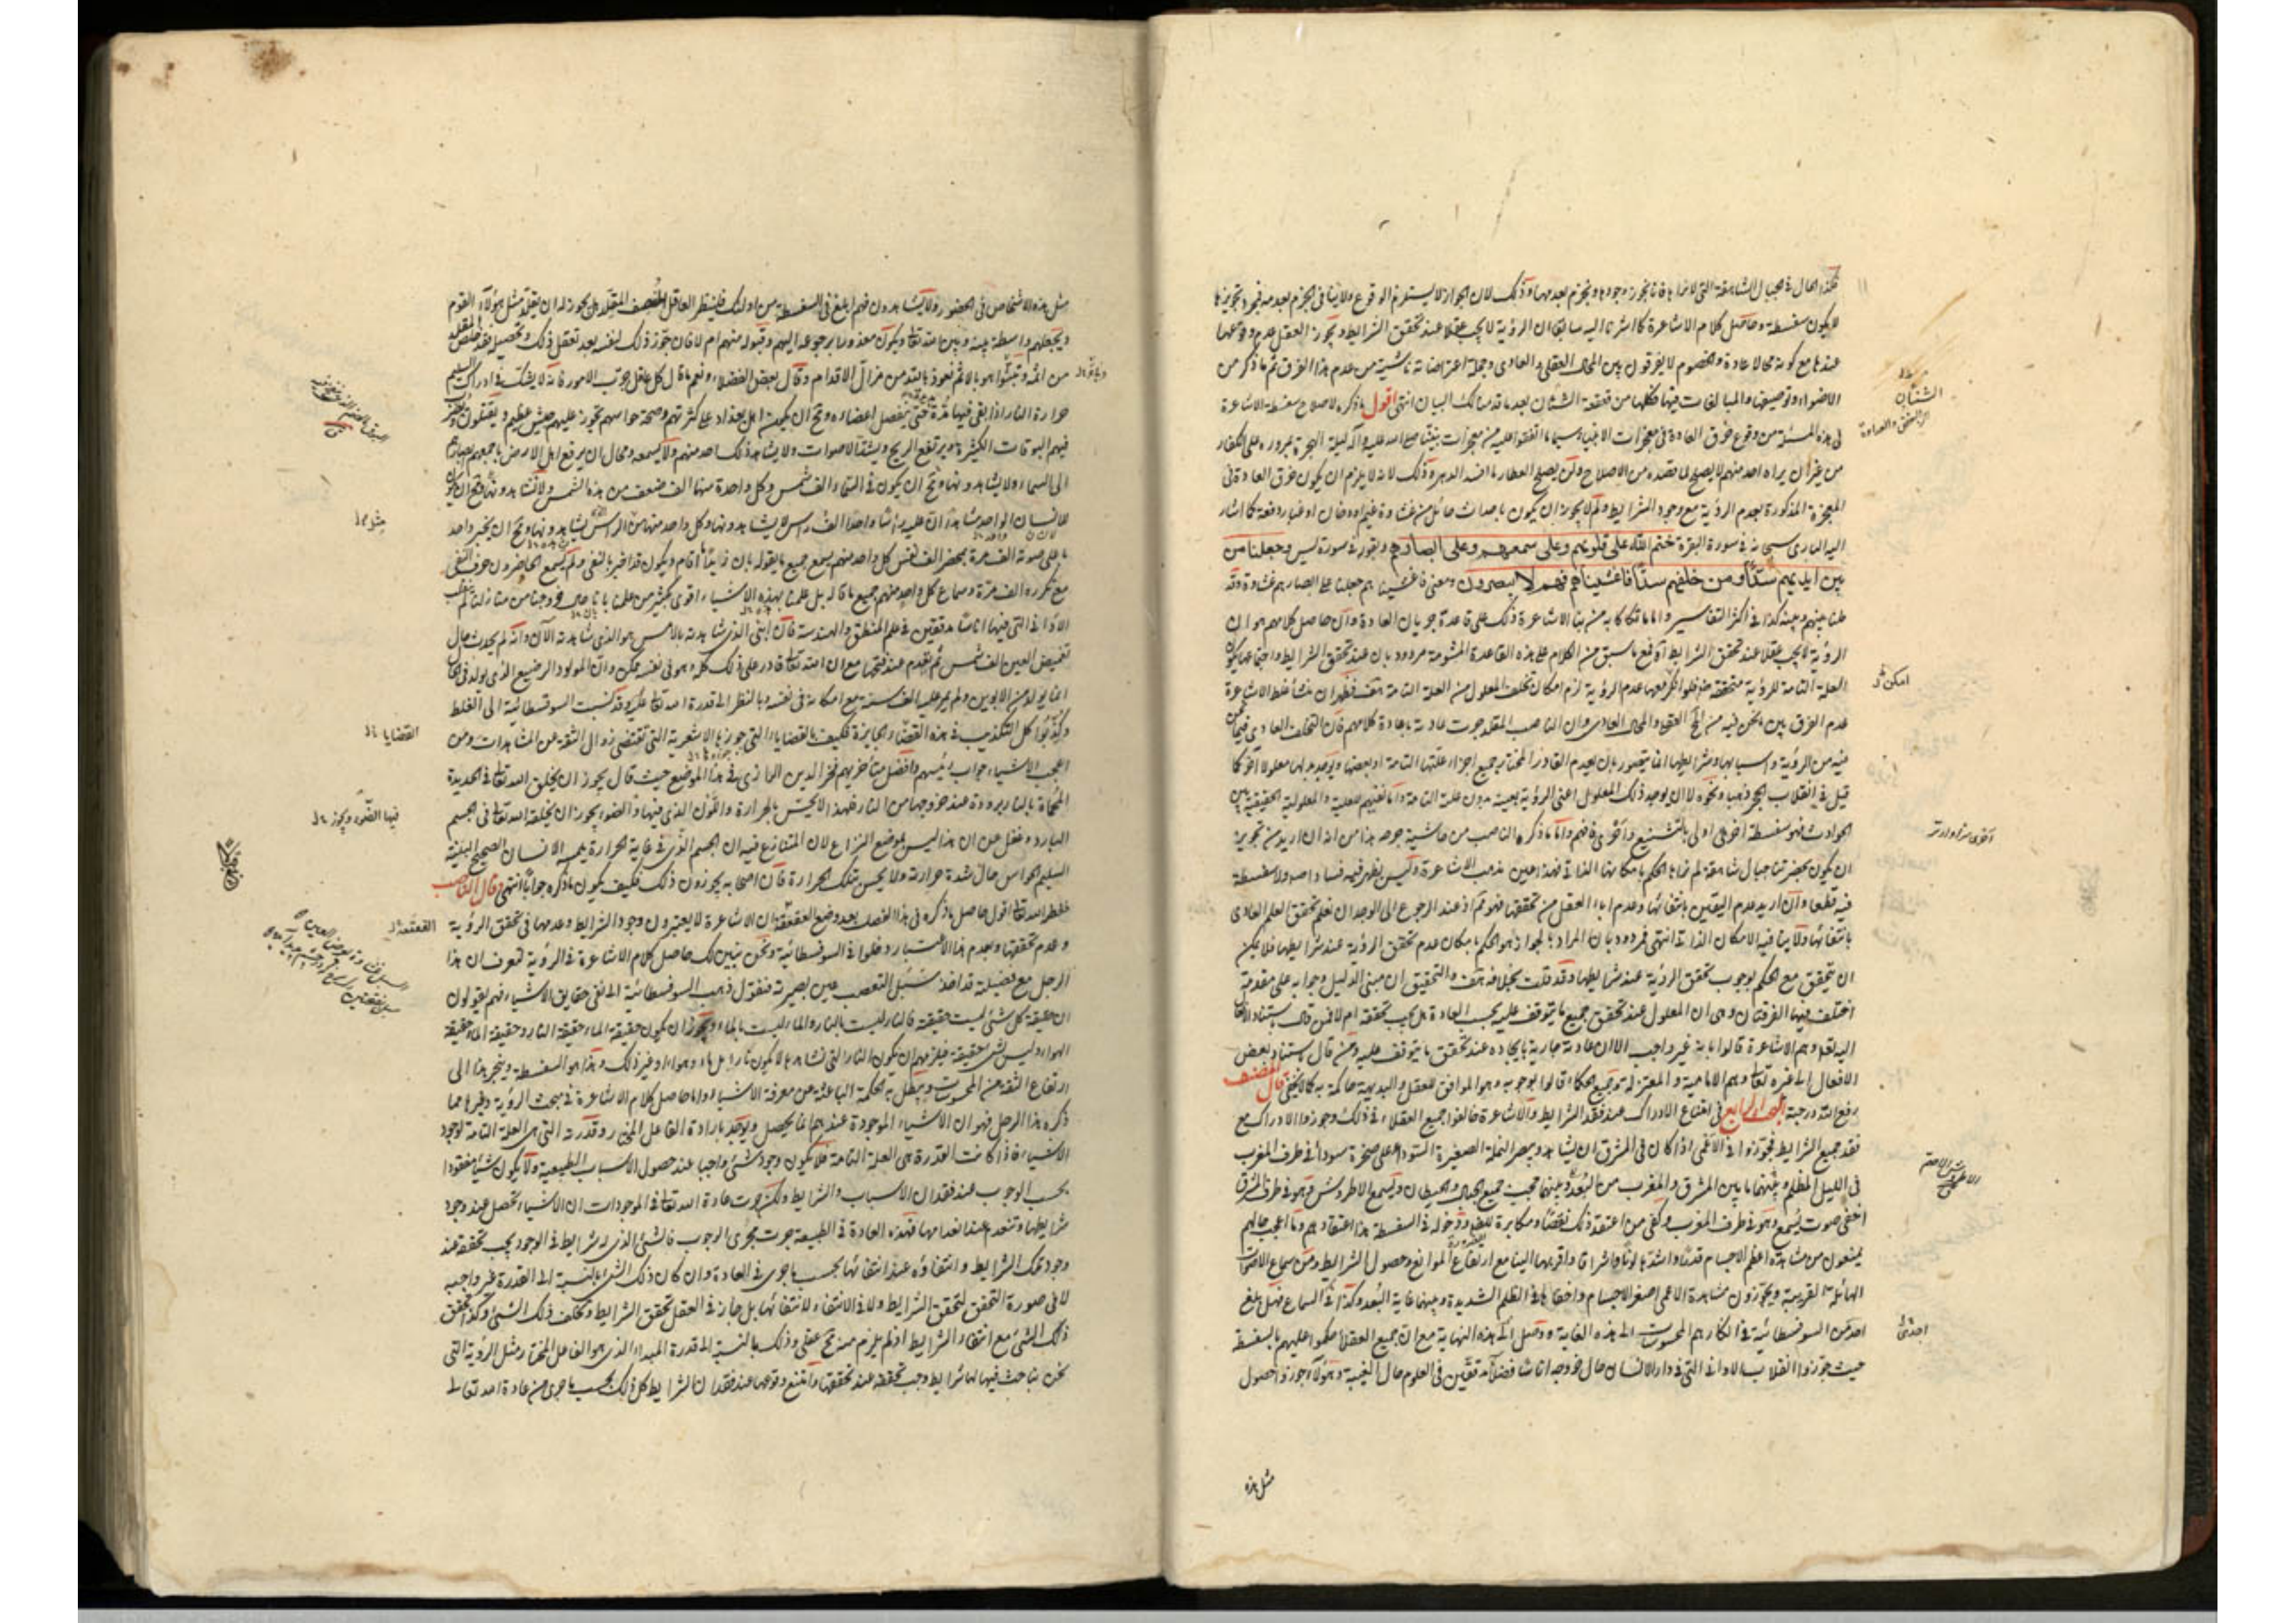 فكذا الحال في الجبال الشاهقة التي لا نراها فانا نجوز وجودها ونجزم بعدمها وذلك لان الجواز لا يستلزم الوقوع ولا ينافي الجزم بعدمه فمجرد تجويزها
لا يكون سفسطة وحاصل كلام الاشاعرة كما اشرنا اليه سابقا ان الرؤية لا يجب عقلا عند تحقق الشرايط ويجوز العقل عدم وقوعها
عندها مع كونه محالا عادة والخصوم لا يفرقون بين المحال العقلي والعادي وجملة اعتراضاته ناشئة من عدم هذا الفرق ثم ما ذكر من
الاضواء وتوصيفها والمبالغات فيها فكلها من قعقعة الشنآن بعد ما قدمنا لك البيان انتهى اقول ما ذكره لاصلاح سفسطة الاشاعرة
في هذه المسئلة من وقوع خرق العادة في معجزات الانبياء سيما ما اتفقوا عليه من معجزات نبينا صلى الله عليه وآله ليلة الهجرة بمروره على الكفار
من غير ان يراه احد منهم لا يصلح لما قصده من الاصلاح ولن يصلح العطار ما افسد الدهر وذلك لانه لا يلزم ان يكون خرق العادة في
المعجزة المذكورة بعدم الرؤية مع وجود الشرايط ولم لا يجوز ان يكون باحداث حائل من غشاوة غيم او دخان او غبار دفعة كما اشار
اليه الباري سبحانه في سورة البقرة ختم الله على قلوبهم وعلى سمعهم وعلى ابصارهم وبقوله في سورة يس وجعلنا من
بين ايديهم سدا ومن خلفهم سدا فاغشيناهم فهم لا يبصرون ومعنى فاغشيناهم جعلنا على ابصارهم غشاوة وقد
حلنا بينهم وبينه كذا في اكثر التفاسير واما ما تكلف به من بنا الاشاعرة ذلك على قاعدة جريان العادة وان حاصل كلامهم هو ان
الرؤية لا يجب عقلا عند تحقق الشرايط آه فمع ما سبق من الكلام على هذه القاعدة المشومة مردود بان عند تحقق الشرايط واجتماعها يكون
العلة التامة للرؤية متحققة فلو امكن معها عدم الرؤية لزم امكان تخلف المعلول من العلة التامة هف فظهر ان منشأ غلط الاشاعرة
عدم الفرق بين ما نحن فيه من المحال العقلي والمحال العادي وان الناصب المقلد جرت عادته باعادة كلامهم فان التخلف العادي فيما نحن
فيه من الرؤية واسبابها وشرايطها انما يتصور بان يعدم القادر المختار جميع اجزاء علتها التامة او بعضها ويوجد بدلها معلولا آخر كما
قيل في انقلاب الحجر ذهبا ونحوه لا ان يوجد ذلك المعلول اعني الرؤية بعينه بدون علته التامة واما نفيهم للعلية والمعلولية الحقيقية بين
الحوادث فهو سفسطة اخرى اولى بالتشنيع واحرى فافهم واما ما ذكره الناصب من حاشية جرحه هنا من انه ان اريد من تجويز
ان يكون بحضرتنا جبال شاهقة لم نراها الحكم بامكانها الذاتي فهذا عين مذهب الاشاعرة وليس يظهر فيه فساد اصلا ولا سفسطة
فيه قطعا وان اريد عدم اليقين بانتفائها وعدم اباء العقل من تحققها فهو مم اذ عند الرجوع الى الوجدان نعلم تحقق العلم العادي
بانتفائها ولا ينافيه الامكان الذاتي انتهى فمردود بان المراد بالجواز هو الحكم بامكان عدم تحقق الرؤية عند شرايطها فلا يمكن
ان يتحقق مع الحكم بوجوب تحقق الرؤية عند شرايطها وقد قلت بخلافه هف والتحقيق ان مبنى الدليل وجوابه على مقدمة
اختلف فيها الفرقتان وهي ان المعلول عند تحقق جميع ما يتوقف عليه بحسب العادة هل يجب تحققه ام لا فمن قال باستناد الافعال
اليه تعالى وهم الاشاعرة قالوا بانه غير واجب الا ان عادته جارية بايجاده عند تحقق ما يتوقف عليه ومن قال باستناد بعض
الافعال الى غيره تعالى وهم الامامية والمعتزلة وجميع الحكماء قالوا بوجوبه وهو الموافق للعقل والبديهة حاكمة به كما لا يخفى قال المصنف
رفع الله درجته البحث الرابع في امتناع الادراك عند فقد الشرايط والاشاعرة خالفوا جميع العقلاء في ذلك وجوزوا الادراك مع
فقد جميع الشرايط فجوزوا في الاعمى اذا كان في المشرق ان يشاهد ويبصر النملة الصغيرة السوداء على صخرة سوداء في طرف المغرب
في الليل المظلم وبينهما ما بين المشرق والمغرب من البعد وبينهما حجب جميع الجبال والحيطان ويسمع الاطروش وهو في طرف المشرق
اخفى صوت يسمع وهو في طرف المغرب وكفى من اعتقد ذلك نقصا ومكابرة للضرورة ودخوله في السفسطة هذا اعتقادهم وما اعجب حالهم
يمنعون من مشاهدة اعظم الاجسام قدرا واشدها لونا واشراقا واقربها الينا مع ارتفاع الموانع وحصول الشرايط ومن سماع الاصوات
الهائلة القريبة ويجوزون مشاهدة الاعمى اصغر الاجسام واخفاها في الظلم الشديدة وبينهما غاية البعد وكذا في السماع فهل بلغ
احد من السوفسطائية في انكارهم المحسوسات الى هذه الغاية ووصل الى هذه النهاية مع ان جميع العقلاء حكموا عليهم بالسفسطة
حيث جوزوا انقلاب الاواني التي في دار الانسان حال خروجه اناسا فضلاء مدققين في العلوم حال الغيبة وهؤلاء جوزوا حصول
مثل هذه
الشنآن
امكن
مثل هذه الاشخاص في الحضور ولا يشاهدون فهم ابلغ في السفسطة من اولئك فلينظر العاقل المنصف المقلد هل يجوز له ان يقلد مثل هؤلاء القوم
ويجعلهم واسطة بينه وبين الله تعالى ويكون معذورا برجوعه اليهم وقبوله منهم ام لا فان جوز ذلك لنفسه بعد تعقل ذلك وتحصيله فقد خلص المقلد
من اثمه وتبوءوا هو بالاثم نعوذ بالله من مزال الاقدام وقال بعض الفضلاء ونعم ما قال كل عاقل جرب الامور فانه لا يشك في ادراك السليم
حرارة النار اذا بقي فيها مدة حتى ينفصل اعضاؤه ومحال ان يكون اهل بغداد على كثرتهم وصحة حواسهم يجوز عليهم جيش عظيم ويقتلون ويضرب
فيهم البوقات الكثيرة ويرتفع الريح ويشتد الاصوات ولا يشاهد ذلك احد منهم ولا يسمعه ومحال ان يرفع اهل الارض باجمعهم ابصارهم
الى السماء ولا يشاهدونها ومحال ان يكون في السماء الف شمس وكل واحدة منها الف ضعف من هذه الشمس ولا نشاهدونها ومحال ان يكون
لانسان الواحد مشاهد ان عليه رأسا واحدا الف رأس لا يشاهدونها وكل واحد منها مثل الرأس الذي يشاهدونها ومحال ان يخبر واحد
باعلى صوته الف مرة بمحضر الف نفس كل واحد منهم يسمع جميع ما يقوله بان زيدا ما قام ويكون قد اخبر بالنفي ولم يسمع الحاضرون حرف النفي
مع تكرره الف مرة وسماع كل واحد منهم جميع ما قاله بل علمنا بهذه الاشياء اقوى بكثير من علمنا بانا حين خروجنا من منازلنا لم ينقلب
الاواني التي فيها اناسا مدققين في علم المنطق والهندسة وان ابني الذي شاهدته بالامس هو الذي شاهدته الآن وانه لم يحدث حال
تغميض العين الف شمس ثم تعدم عند فتحها مع ان الله تعالى قادر على ذلك كله وهو في نفسه ممكن وان المولود الرضيع الذي يولد في الحال
انما يولد من الابوين ولم يمر عليه الف سنة مع امكانه في نفسه وبالنظر الى قدرة الله تعالى عليه وقد نسبت السوفسطائية الى الغلط
وكذبوا كل التكذيب في هذه القضايا الجايزة فكيف بالقضايا التي جوزها الاشعرية التي تقتضي زوال الثقة عن المشاهدات ومن
اعجب الاشياء جواب رئيسهم وافضل متأخريهم فخر الدين الرازي في هذا الموضع حيث قال يجوز ان يخلق الله تعالى في الحديدة
المحماة بالنار برودة عند خروجها من النار فلهذا لا يحس بالحرارة واللون الذي فيها والضوء يجوز ان يخلقه الله تعالى في الجسم
البارد وغفل عن ان هذا ليس بموضع النزاع لان المتنازع فيه ان الجسم الذي في غاية الحرارة يلمسه الانسان الصحيح البنية
السليم الحواس حال شدة حرارته ولا يحس بتلك الحرارة فان اصحابه يجوزون ذلك فكيف يكون ما ذكره جوابا انتهى وقال الناصب
خفظه الله تعالى اقول حاصل ما ذكره في هذا الفصل بعد وضع القعقعة ان الاشاعرة لا يعتبرون وجود الشرايط وعدمها في تحقق الرؤية
وعدم تحققها وبعدم هذا الاعتبار دخلوا في السوفسطائية ونحن نبين لك حاصل كلام الاشاعرة في الرؤية لتعرف ان هذا
الرجل مع فضيلته قد اخذ سبيل التعصب عين بصيرته فنقول ذهب السوفسطائية الى نفي حقايق الاشياء فهم يقولون
ان حقيقة كل شئ ليست حقيقته فالنار ليست بالنار والماء ليست بالماء ويجوز ان يكون حقيقة الماء حقيقة النار وحقيقة الماء حقيقة
الهواء وليس لشئ حقيقة فيلزمهم ان يكون النار التي نشاهدها لا يكون نارا بل ماء وهواء وغير ذلك وهذا هو السفسطة وينجر هذا الى
ارتفاع الثقة من المحسوسات ويبطل به الحكمة الباعثة عن معرفة الاشياء واما حاصل كلام الاشاعرة في مبحث الرؤية وغيرها مما
ذكره هذا الرجل فهو ان الاشياء الموجودة عندهم انما يحصل ويوجد بارادة الفاعل المختار وقدرته التي هي العلة التامة لوجود
الاشياء فاذا كانت القدرة هي العلة التامة فلا يكون وجود شئ واجبا عند حصول الاسباب الطبيعية ولا يكون شئ مفقودا
بحسب الوجوب عند فقدان الاسباب والشرايط ولكن جرت عادة الله تعالى في الموجودات ان الاشياء تحصل عند وجود
شرايطها وتنعدم عند انعدامها فهذه العادة في الطبيعة جرت مجرى الوجوب فالشئ الذي له شرايط في الوجود يجب تحققه عند
وجود تلك الشرايط وانتفاؤه عند انتفائها بحسب ما جرى في العادة وان كان ذلك الشئ بالنسبة الى القدرة غير واجبة
لا في صورة التحقق لتحقق الشرايط ولا في الانتفاء لانتفائها بل جاز في العقل تحقق الشرايط وتخلف ذلك الشئ وكذا تحقق
ذلك الشئ مع انتفاء الشرايط اذ لم يلزم منه مح عقلي وذلك بالنسبة الى قدرة المبدء الذي هو الفاعل المختار مثل الرؤية التي
نحن نباحث فيها لها شرايط وجب تحققه عند تحققها وامتنع وقوعها عند فقدان الشرايط كل ذلك بحسب ما جرى من عادة الله تعالى
القضايا
القعقعة